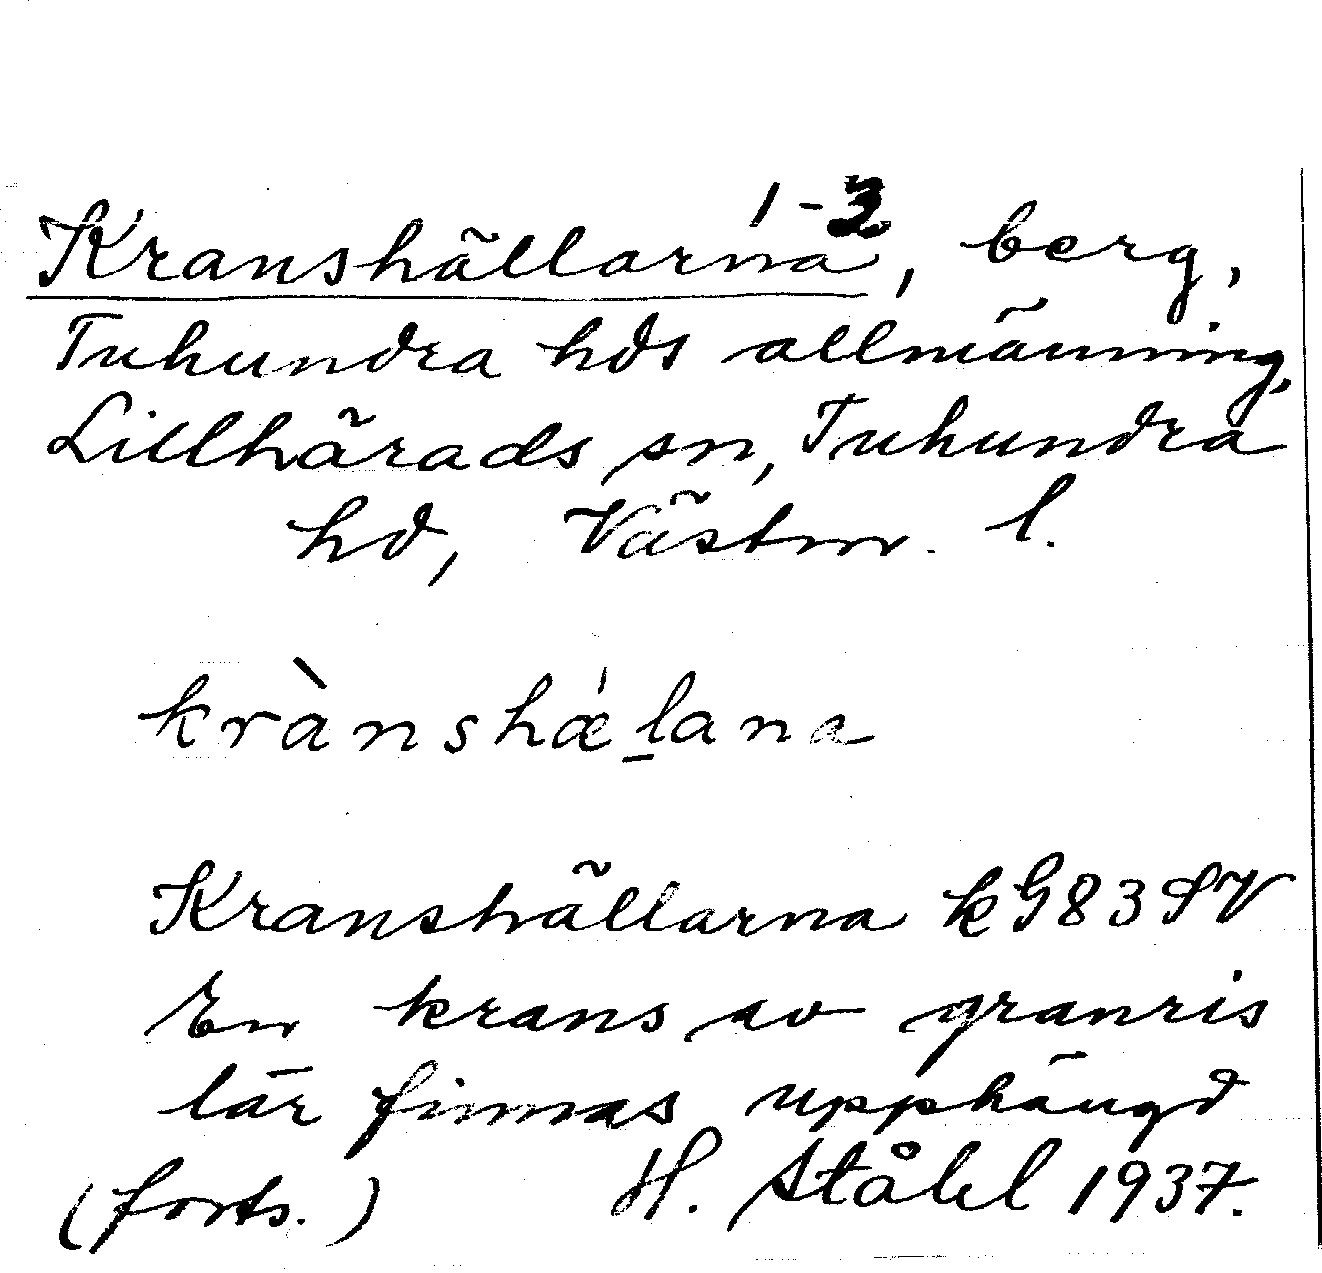 Kranshällarna 1-2, berg,
Tuhundra hds allmänning,
Lillhärads sn, Tuhundra
hd, Västm. l.
krànshǽḻana
Kranshällarna k G83SV
En krans av granris
lär finnas upphängd
(forts.) H. Ståhl 1937.